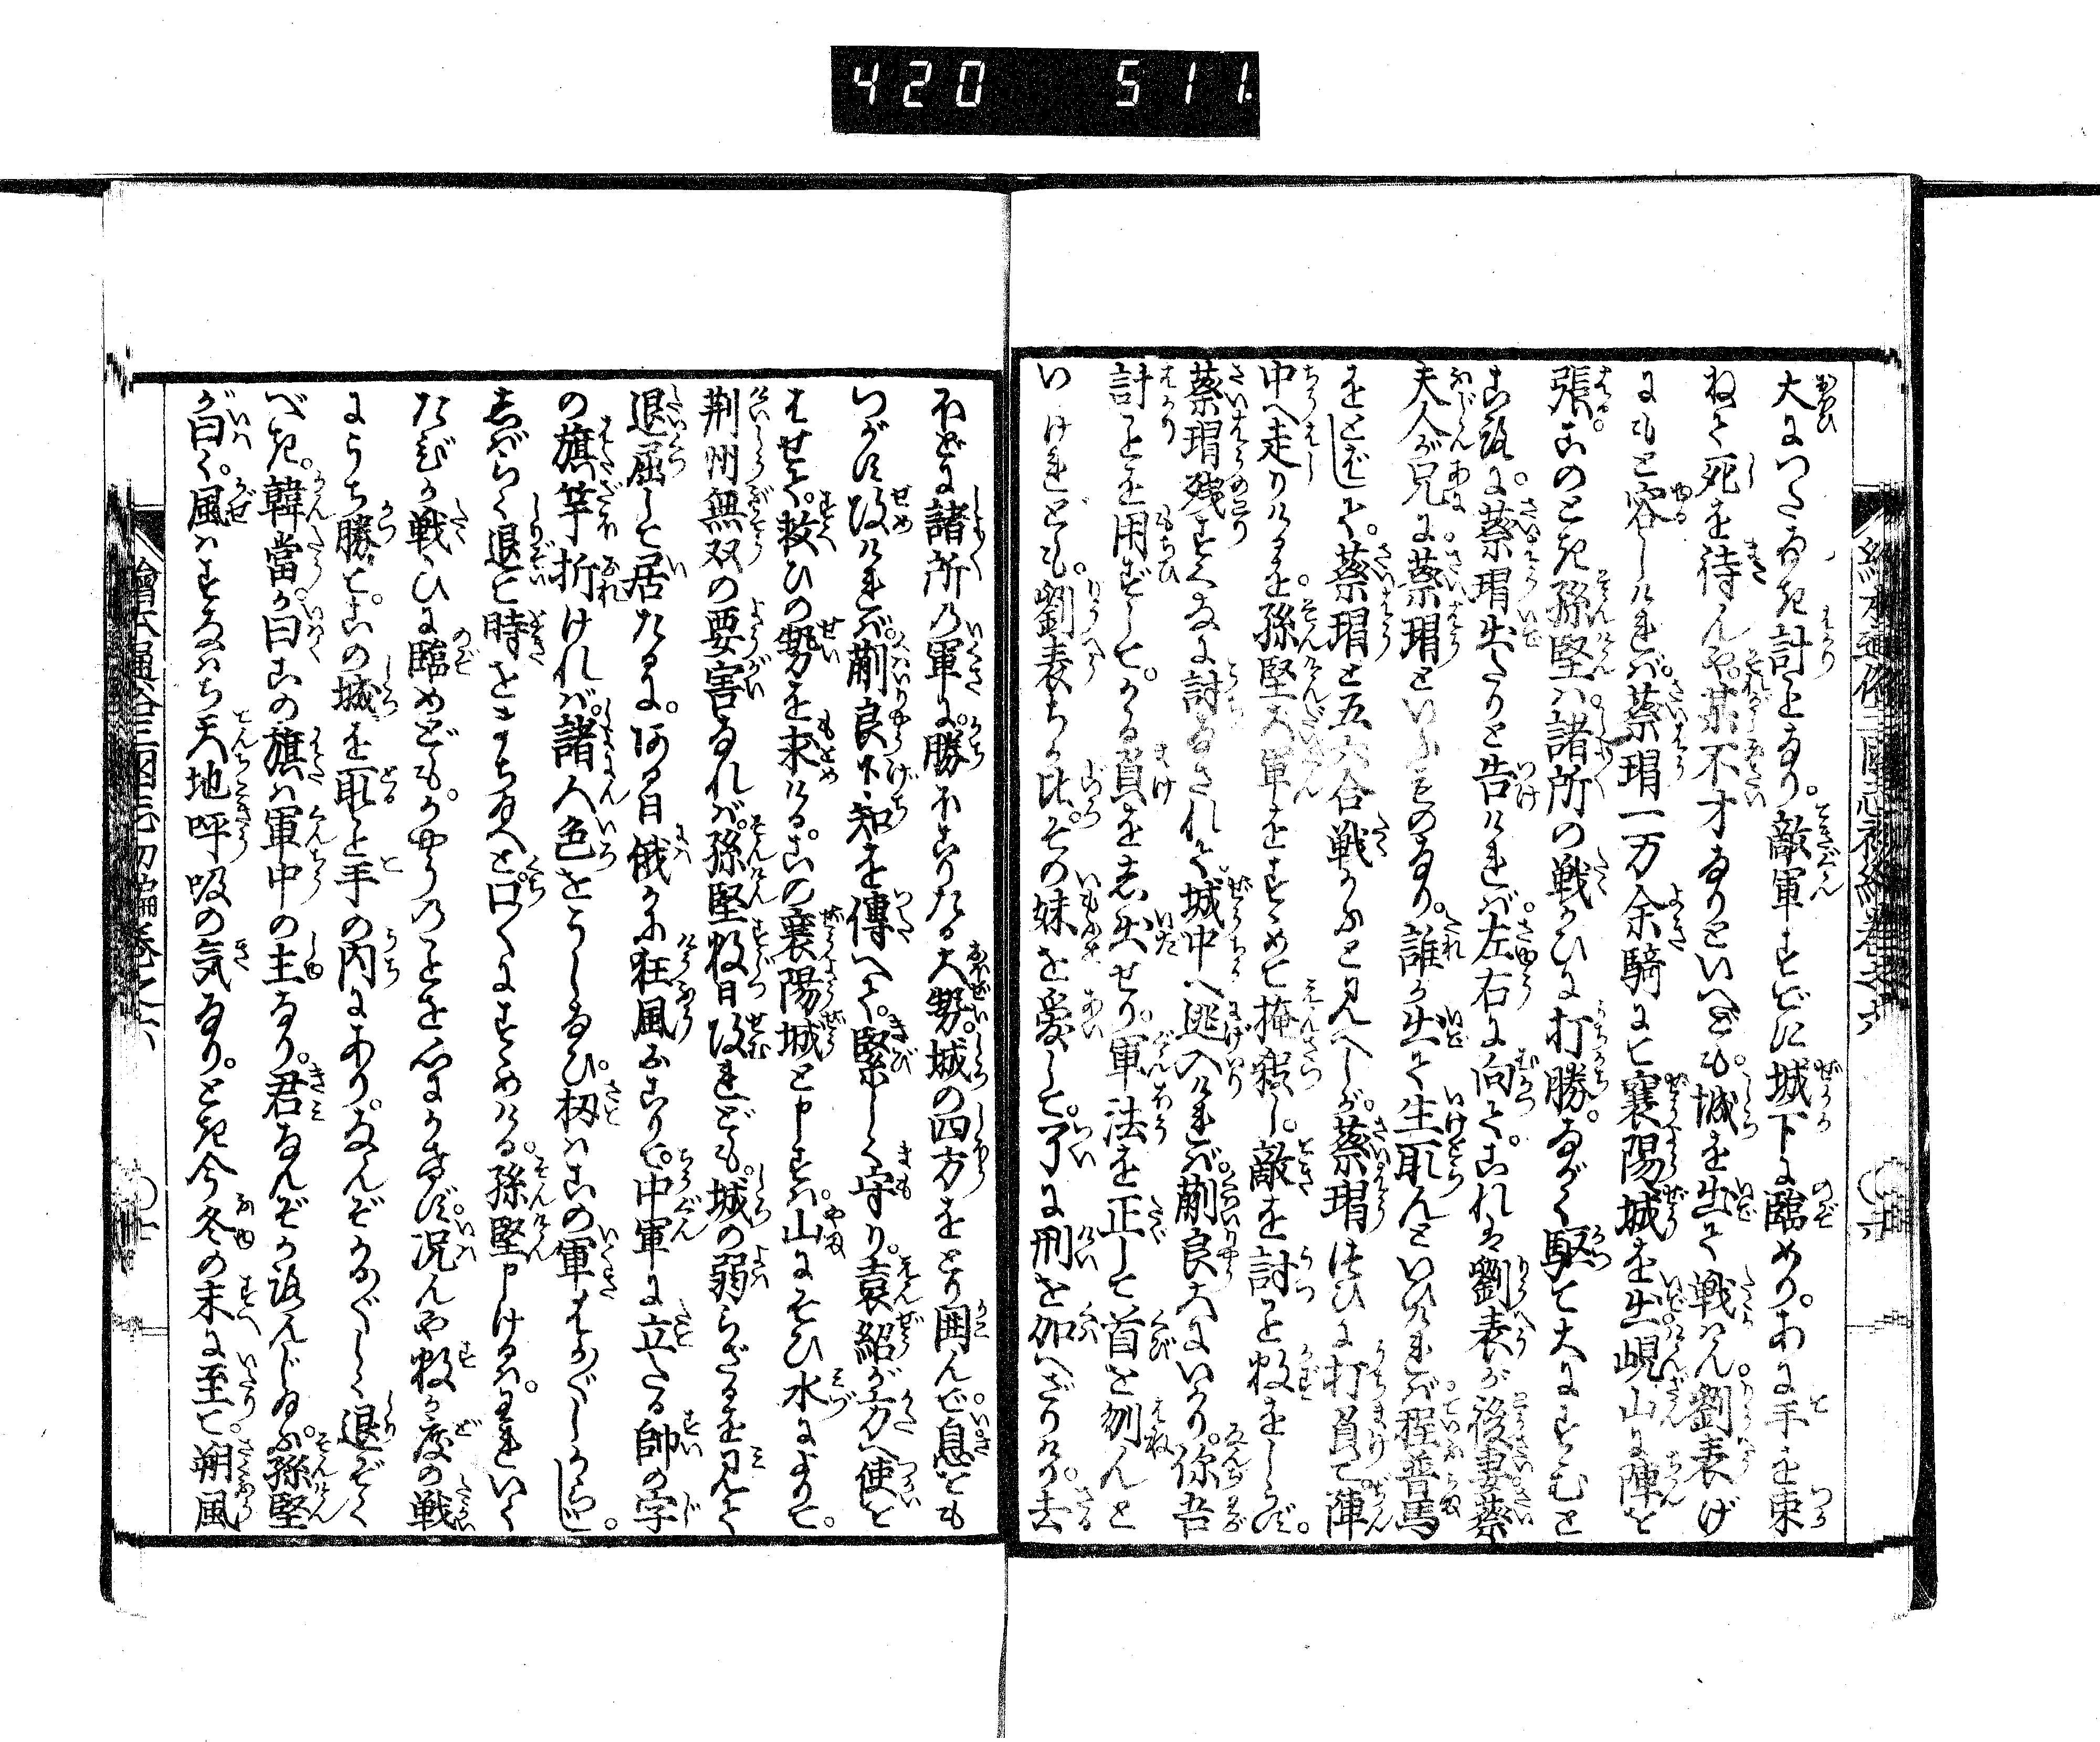 420 511
繪本通俗三國志初編巻之六
大につたなき計となり。敵軍すでに城下に臨めり。あに手を束
ねて死を待んや。某不才なりといへども。城を出て戦はん。劉表げ
にもと容しければ。蔡瑁一万余騎にて襄陽城を出。峴山に陣を
張。このとき孫堅は諸所の戦ひに打勝。ながく駆て大にすゝむと
ころに。蔡瑁出たりと告ければ。左右に向て。これは劉表が後妻蔡
夫人が兄に。蔡瑁といふものなり。誰か出て生取んといひければ。程普馬
をとばして。蔡瑁と五六合戦かふと見へしが。蔡瑁つひに打負て陣
中へ走りけるを。孫堅大軍をすゝめて掩殺し。敵を討こと数をしらず。
蔡瑁残すくなに討なされて。城中へ逃入ければ。蒯良大にいかり。你吾
計ことを用ずして。かゝる負をし出せり。軍法を正して首を刎んと
いけれども。劉表ちか比。その妹を愛して。了に刑を加へざりけり。去
ほどに諸所の軍に。勝ほこりたる大勢。城の四方をとり囲んで。息をも
つがず攻ければ。蒯良下知を傳へて。緊しく守り。袁紹が方へ使を
はせて。救ひの勢を求ける。この襄陽城と申すは。山にそひ水によりて。
荊州無双の要害なれば。孫堅数日攻れども。城の弱らざるを見て
退屈して居たるに。ある日俄かに狂風おこりて。中軍に立たる帥の字
の旗竿折ければ。諸人色をうしなひ。扨はこの軍はかゞしからじ。
しばらく退て時をまち給へと。口々にすゝめける。孫堅申けるは。われいく
たびか戦ひに臨めども。かやうのことを心にかけず。况んや数か度の戦
にうち勝て。この城を取こと手の内にあり。なんぞかるがるしく退ぞく
べき。韓當か曰。この旗は軍中の主なり。君なんぞか論んじ給ふ。孫堅
が曰く。風はすなはち天地呼吸の気なり。とき今冬の末に至て。朔風
繪本通俗三國志初編巻之六